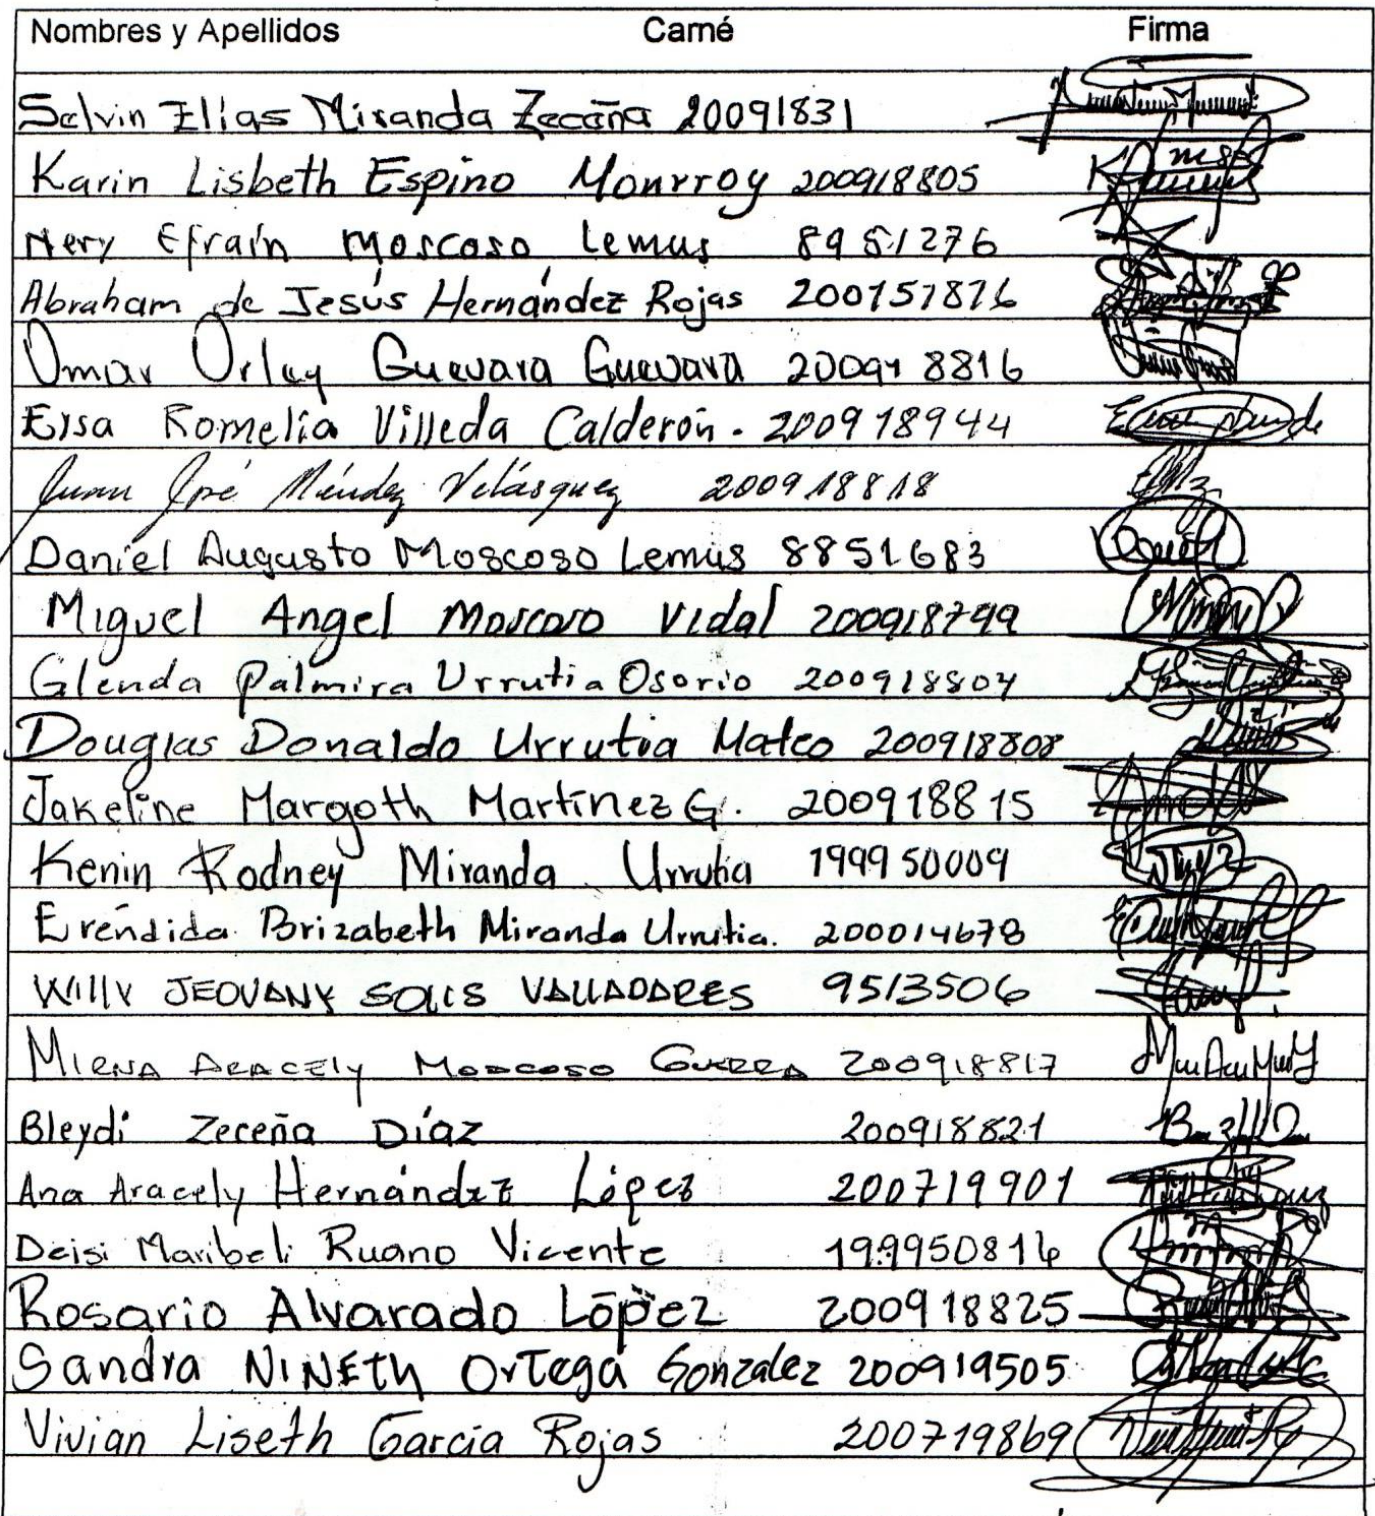 Nombres y Apellidos Carné Firma
Selvin Elías Miranda Zeceña 20091831
Karin Lisbeth Espino Monrroy 200918805
Nery Efraín Moscoso Lemus 8951276
Abraham de Jesús Hernández Rojas 200151876
Omar Orley Guevara Guevara 200918816
Elsa Romelia Villeda Calderón. 200918944
Juan José Méndez Velásquez 200918818
Daniel Augusto Moscoso Lemus 8851683
Miguel Angel Moscoso Vidal 200918799
Glenda Palmira Urrutia Osorio 200918804
Douglas Donaldo Urrutia Mateo 200918808
Jakeline Margoth Martínez G. 200918815
Kenin Rodney Miranda Urrutia 199950009
Eréndida Brizabeth Miranda Urrutia. 200014678
WILLY JEOVANY SOLIS VALLADARES 9513506
MIRNA ARACELY MOSCOSO GUERRA 200918817
Bleydi Zeceña Díaz 200918821
Ana Aracely Hernández López 200719901
Deisi Maribeli Ruano Vicente 199950816
Rosario Alvarado López 200918825
Sandra NINETH Ortega Gonzalez 200919505
Vivian Liseth García Rojas 200719869